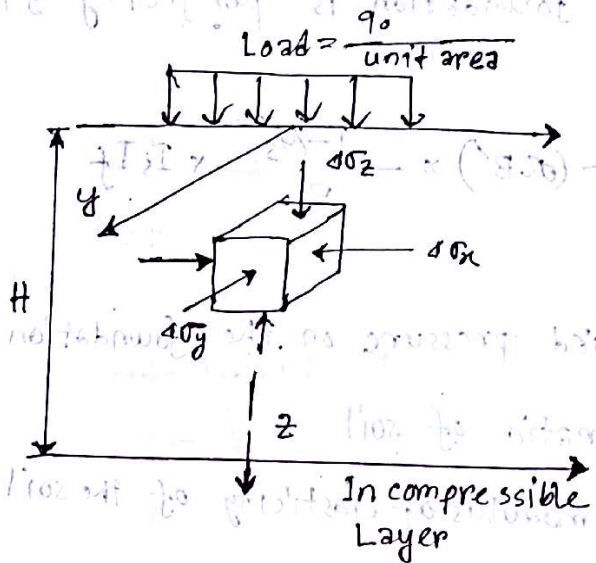 Load = q₀ / unit area
Δσz
y
Δσx
H
Δσy
z
In compressible
Layer